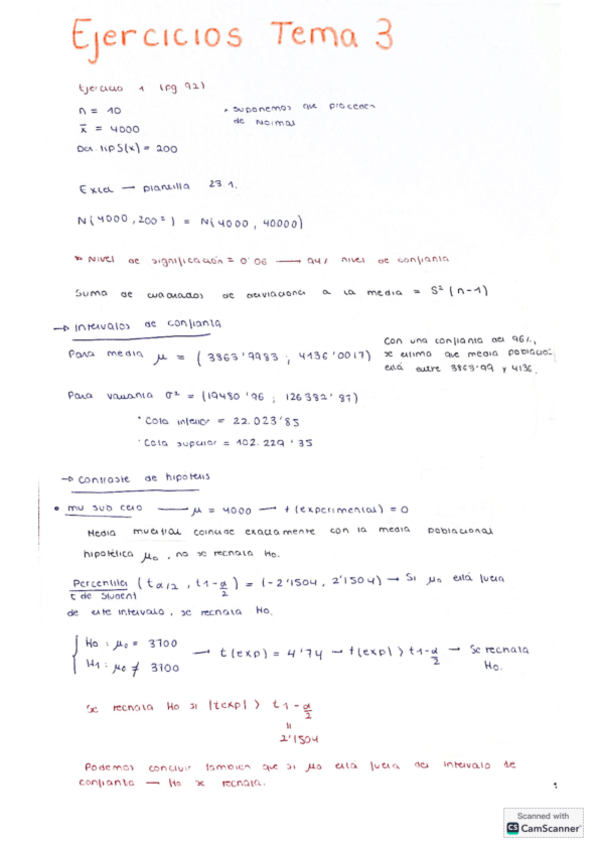 Ejercicios Tema 3
Ejercicio 1 (pg 92)
n = 10
• suponemos que proceden
de Normal
x̄ = 4000
Des. tip S(x) = 200
Excel → plantilla 23 1.
N(4000, 200²) = N(4000, 40000)
* Nivel de significación = 0'06 → 94% nivel de confianza
Suma de cuadrados de desviaciones a la media = S² (n-1)
→ Intervalos de confianza
Para media μ = (3863'9983 ; 4136'0017)
Con una confianza del 96%,
se estima que media poblacional
está entre 3863'99 y 4136.
Para varianza σ² = (19480'96 ; 126382'87)
• Cota inferior = 22.023'85
• Cota superior = 102.229'35
→ Contraste de hipótesis
• mu sub cero → μ = 4000 → t (experimental) = 0
Media muestral coincide exactamente con la media poblacional
hipotética μ₀, no se rechaza H₀.
Percentiles (t α/2 , t 1-α/2) = (-2'1504, 2'1504) → Si μ₀ está fuera
t de Student
de este intervalo, se rechaza H₀.
H₀ : μ₀ = 3700
H₁ : μ₀ ≠ 3700
→ t(exp) = 4'74 → t(exp) > t 1-α/2 → Se rechaza
H₀.
Se rechaza H₀ si |texp| > t 1-α/2
=
2'1504
Podemos concluir también que si μ₀ está fuera del intervalo de
confianza → H₀ se rechaza.
Scanned with
CS CamScanner